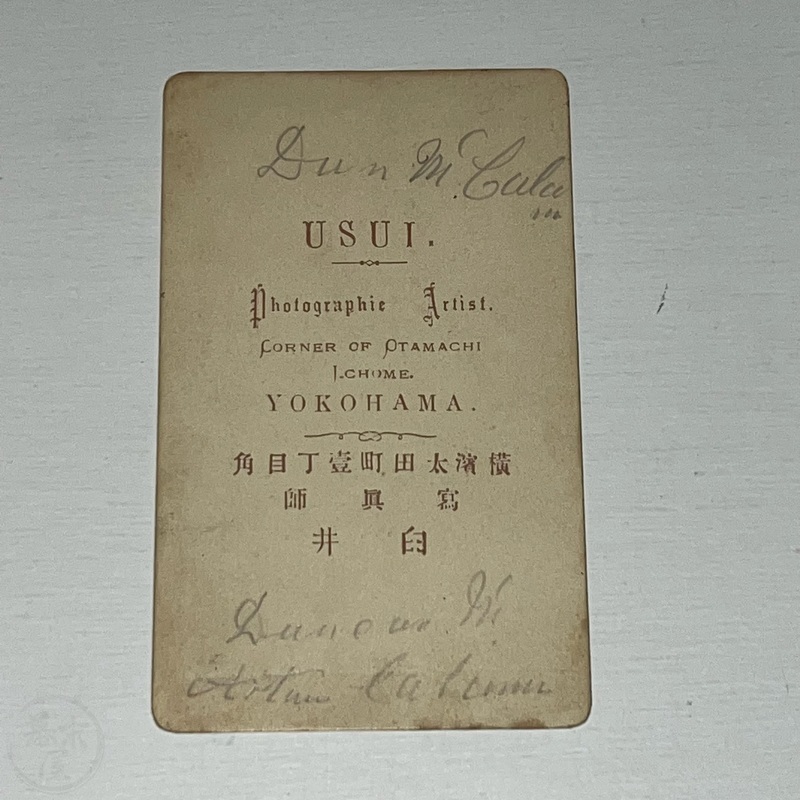 Dun Mc.Cala
m
USUI.
Photographic Artist.
CORNER OF OTAMACHI
I-CHOME.
YOKOHAMA.
角目丁壹町田太濱橫
師眞寫
井臼
Duncan Mc